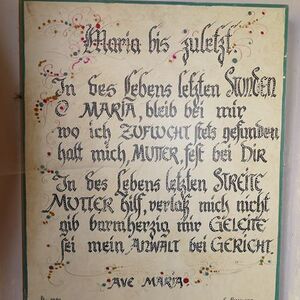 Maria bis zuletzt.
In des Lebens letzten STUNDEN
O MARIA, bleib bei mir
wo ich ZUFLUCHT stets gefunden
halt mich, MUTTER, fest bei DIR
In des Lebens letzten STREITE
MUTTER hilf, verlaß mich nicht
gib barmherzig mir GELEITE
sei mein ANWALT bei GERICHT.
AVE MARIA